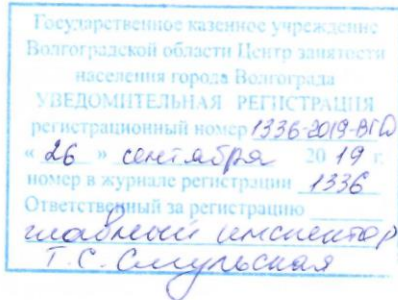 Государственное казенное учреждение
Волгоградской области Центр занятости
населения города Волгограда
УВЕДОМИТЕЛЬНАЯ РЕГИСТРАЦИЯ
регистрационный номер 1336-2019-ВГД
« 26 » сентября 2019 г.
номер в журнале регистрации 1336
Ответственный за регистрацию
главный инспектор
Т.С. Смульская